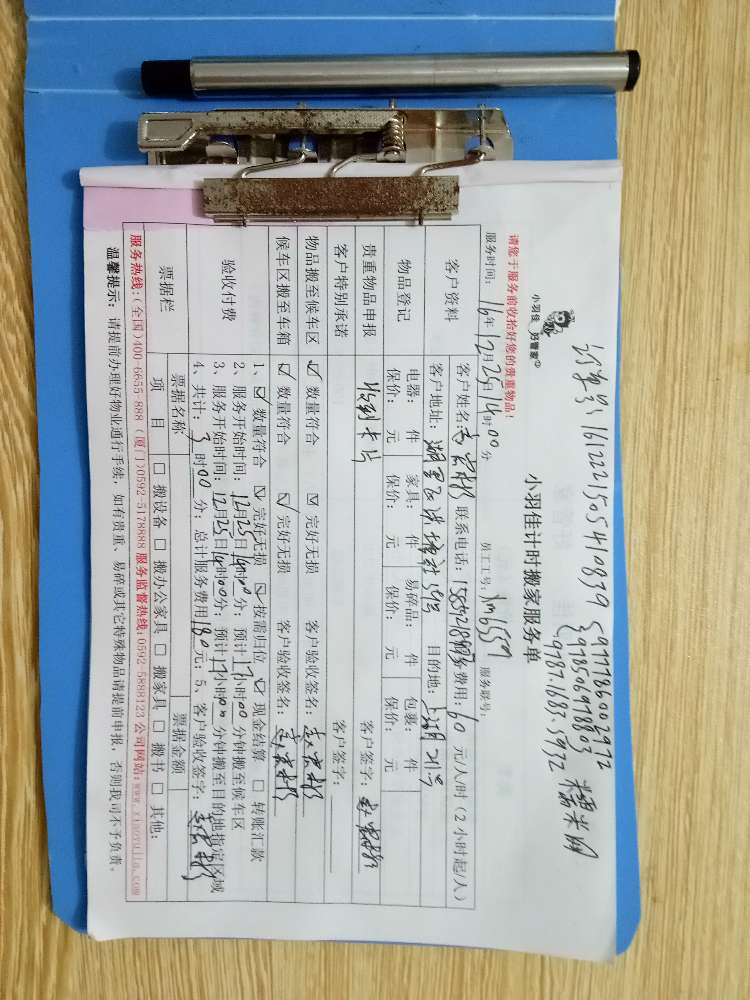 订单号: 1612221505410879
597778660002972
597850698803
9787.1687.5972
糯米网
小羽佳 好管家
小羽佳计时搬家服务单
请您于服务前收拾好您的贵重物品!
服务时间: 16年12月25日14时00分 员工工号: Xm6559 服务联号:
客户资料 客户姓名: 联系电话: 费用: 60 元/人/时(2小时起/人)
客户地址: 目的地:
物品登记 电器: 件 家具: 件 易碎品: 件 包裹: 件
保价: 元 保价: 元 保价: 元 保价: 元
贵重物品申报 收到卡片 客户签字:
客户特别承诺 客户签字:
物品搬至候车区 ☑ 数量符合 ☑ 完好无损 客户验收签名:
候车区搬至车箱 ☑ 数量符合 ☑ 完好无损 客户验收签名:
验收付费 1、☑ 数量符合 ☑ 完好无损 ☑ 按需归位 ☑ 现金结算 □ 转账汇款
2、服务开始时间: 12月25日14时00分; 预计17小时00分钟搬至候车区
3、服务开始时间: 12月25日14时00分; 预计17小时00分钟搬至目的地指定区域
4、共计: 3 时00分; 总计服务费用180元; 5、客户验收签字:
票据栏 票据名称 票据金额
项 目 □ 搬设备 □ 搬办公家具 □ 搬家具 □ 搬书 □ 其他:
服务热线:(全国)400-6655-888 (厦门)0592-5178888 服务监督热线:0592-5888123 公司网站:www.xiaoyujia.com
温馨提示: 请提前办理好物业通行手续, 如有贵重、易碎或其它特殊物品请提前申报, 否则我司不予负责。